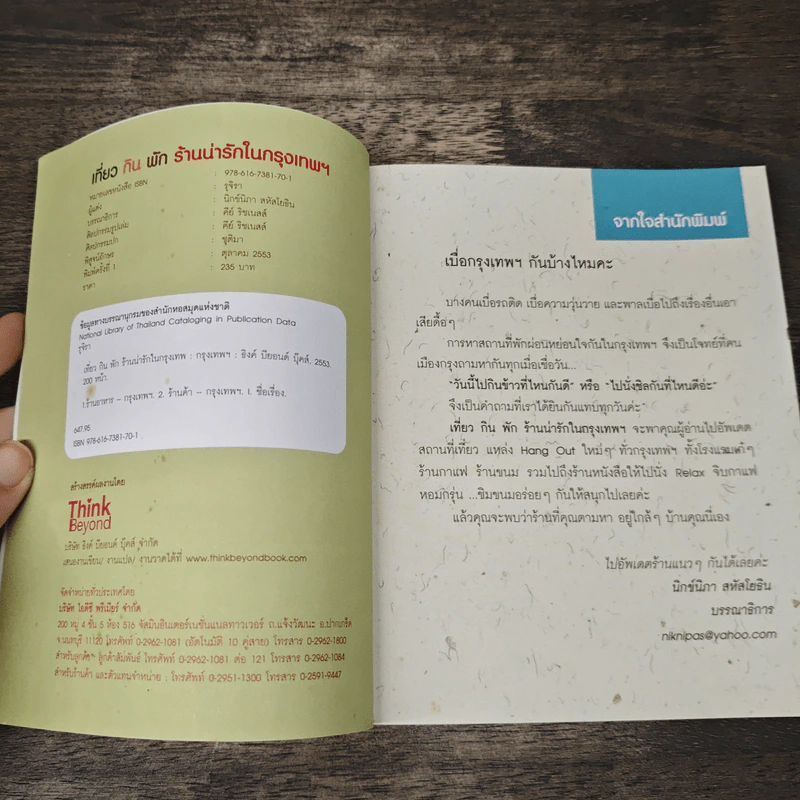 เที่ยว กิน พัก ร้านน่ารักในกรุงเทพฯ
หมายเลขหนังสือ ISBN : 978-616-7381-70-1
ผู้แต่ง : รุจิรา
บรรณาธิการ : นิกข์นิภา สหัสโยธิน
ศิลปกรรมรูปเล่ม : คีย์ ริชเนสส์
ศิลปกรรมปก : คีย์ ริชเนสส์
พิสูจน์อักษร : ชุติมา
พิมพ์ครั้งที่ 1 : ตุลาคม 2553
ราคา : 235 บาท
ข้อมูลทางบรรณานุกรมของสำนักหอสมุดแห่งชาติ
National Library of Thailand Cataloging in Publication Data
รุจิรา
เที่ยว กิน พัก ร้านน่ารักในกรุงเทพ : กรุงเทพฯ : ธิงค์ บียอนด์ บุ๊คส์, 2553.
200 หน้า.
1.ร้านอาหาร – กรุงเทพฯ. 2. ร้านค้า – กรุงเทพฯ. I. ชื่อเรื่อง.
647.95
ISBN 978-616-7381-70-1
สร้างสรรค์ผลงานโดย
Think
Beyond
บริษัท ธิงค์ บียอนด์ บุ๊คส์ จำกัด
เสนองานเขียน/ งานแปล/ งานวาดได้ที่ www.thinkbeyondbook.com
จัดจำหน่ายทั่วประเทศโดย
บริษัท ไอดีซี พรีเมียร์ จำกัด
200 หมู่ 4 ชั้น 5 ห้อง 516 จัสมินอินเตอร์เนชั่นแนลทาวเวอร์ ถ.แจ้งวัฒนะ อ.ปากเกร็ด
จ.นนทบุรี 11120 โทรศัพท์ 0-2962-1081 (อัตโนมัติ 10 คู่สาย) โทรสาร 0-2962-1800
สำหรับลูกค้า ลูกค้าสัมพันธ์ โทรศัพท์ 0-2962-1081 ต่อ 121 โทรสาร 0-2962-1084
สำหรับร้านค้า และตัวแทนจำหน่าย : โทรศัพท์ 0-2951-1300 โทรสาร 0-2591-9447
จากใจสำนักพิมพ์
เบื่อกรุงเทพฯ กันบ้างไหมคะ
บางคนเบื่อรถติด เบื่อความวุ่นวาย และพาลเบื่อไปถึงเรื่องอื่นเอา
เสียดื้อๆ
การหาสถานที่พักผ่อนหย่อนใจกันในกรุงเทพฯ จึงเป็นโจทย์ที่คน
เมืองกรุงถามหากันทุกเมื่อเชื่อวัน...
"วันนี้ไปกินข้าวที่ไหนกันดี" หรือ "ไปนั่งชิลกันที่ไหนดีอ่ะ"
จึงเป็นคำถามที่เราได้ยินกันแทบทุกวันค่ะ
เที่ยว กิน พัก ร้านน่ารักในกรุงเทพฯ จะพาคุณผู้อ่านไปอัพเดต
สถานที่เที่ยว แหล่ง Hang Out ใหม่ๆ ทั่วกรุงเทพฯ ทั้งโรงแรมเก๋ๆ
ร้านกาแฟ ร้านขนม รวมไปถึงร้านหนังสือให้ไปนั่ง Relax จิบกาแฟ
หอมกรุ่น ...ชิมขนมอร่อยๆ กันให้สนุกไปเลยค่ะ
แล้วคุณจะพบว่าร้านที่คุณตามหา อยู่ใกล้ๆ บ้านคุณนี่เอง
ไปอัพเดตร้านแนวๆ กันได้เลยค่ะ
นิกข์นิภา สหัสโยธิน
บรรณาธิการ
niknipas@yahoo.com